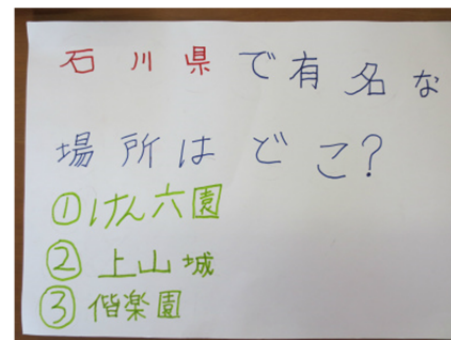 石川県で有名な
場所はどこ?
①けん六園
②上山城
③偕楽園